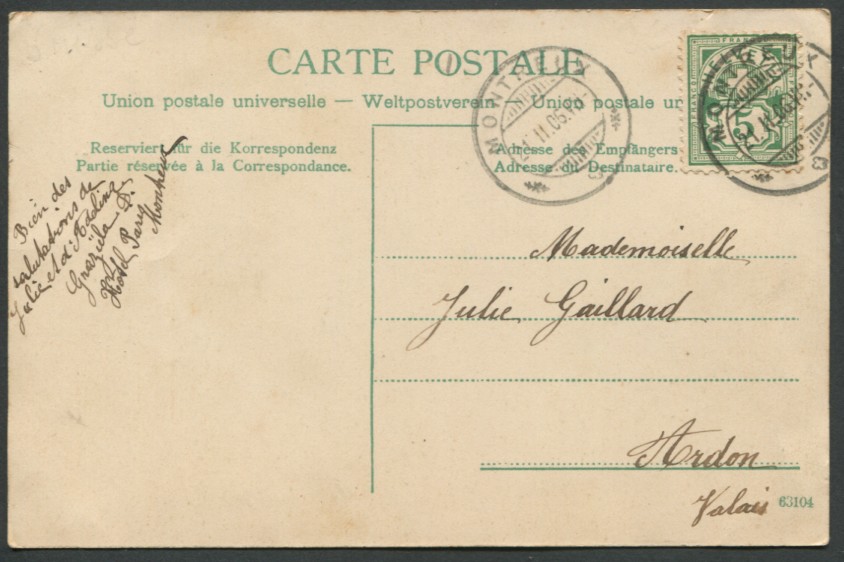 CARTE POSTALE
Union postale universelle — Weltpostverein — Unione postale un
Reserviert für die Korrespondenz
Partie réservée à la Correspondance.
Adresse des Empfängers
Adresse du Destinataire.
MONTREUX
21.II.06
FRANCO
5
MONTREUX
21.II.06
Bien des
salutations de
Julie et d'
Hôtel
Mademoiselle
Julie Gaillard
Ardon
Valais
63104